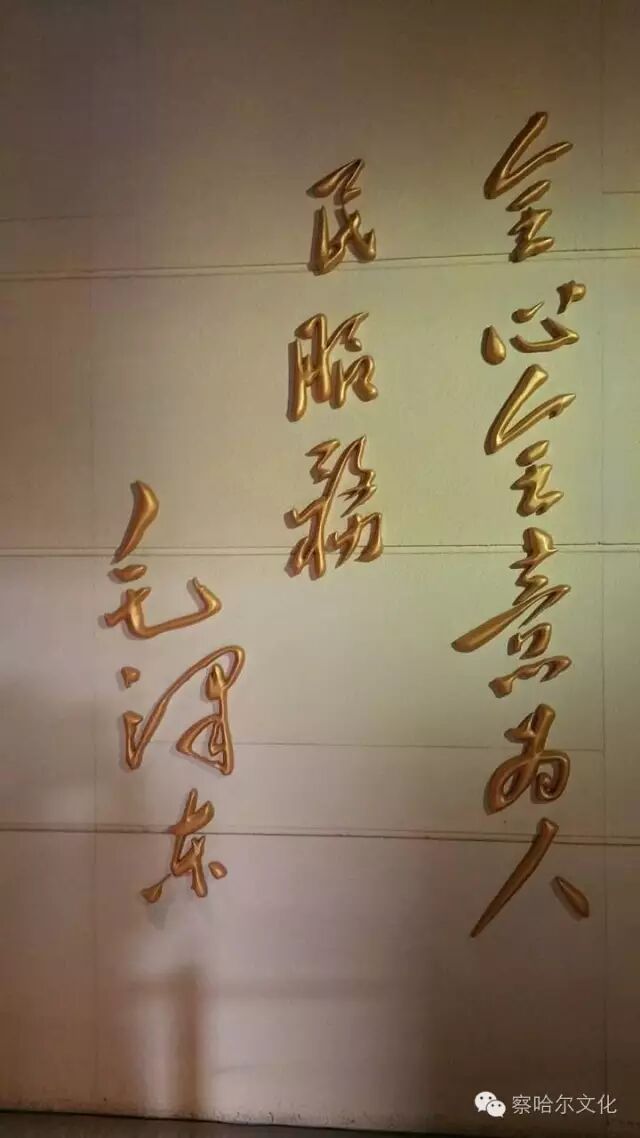 全心全意为人
民服務
毛泽东
察哈尔文化